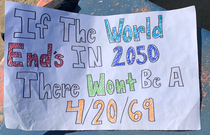 If The World
Ends IN 2050
There Wont Be A
4/20/69